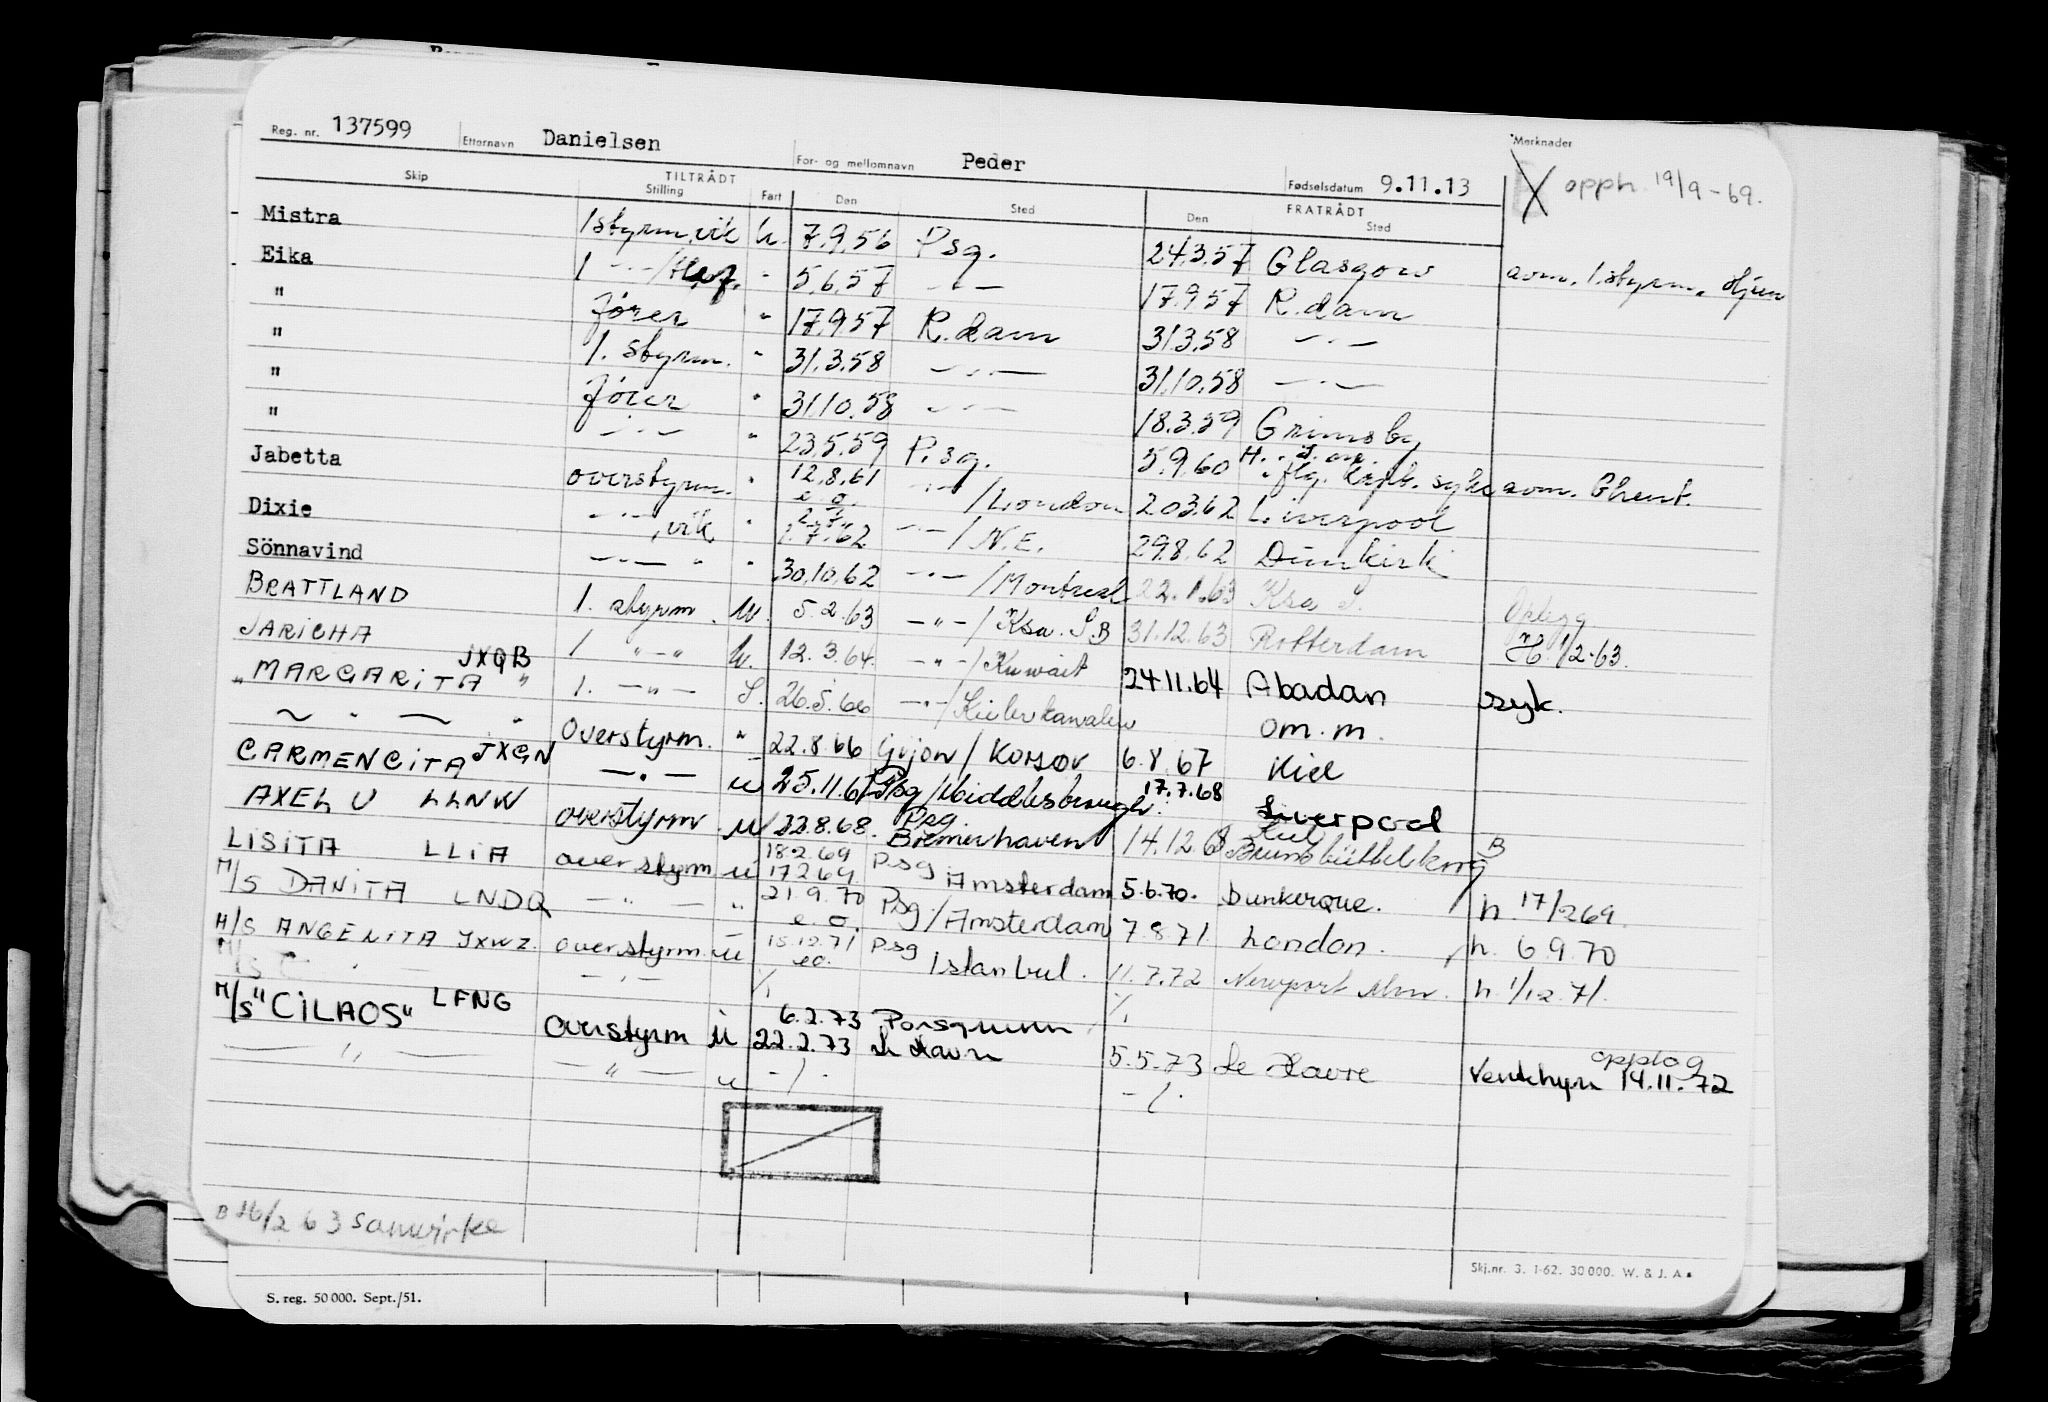 Reg. nr. 137599 Etternavn Danielsen For- og mellomnavn Peder Fødselsdatum 9.11.13 Merknader
X opph. 19/9-69.
Skip TILTRÅDT Stilling Fart Den Sted FRATRÅDT Den Sted
Mistra 1 styrm, vik U. 7.9.56 Psg. 24.3.57 Glasgow avm. 1. styrm.
Eika 1 -"- " 5.6.57 -"- 17.9.57 R.dam
" fører " 17.9.57 R.dam 31.3.58 -"-
" 1. styrm. " 31.3.58 -"- 31.10.58 -"-
" fører " 31.10.58 -"- 18.3.59 Grimsby
" -"- " 23.5.59 P.sg. 5.9.60 avm. Ghent.
Jabetta overstyrm. " 12.8.61 e.o. -"- / London 20.3.62 Liverpool
Dixie -"-, vik " 1.7.62 -"- / N.E. 29.8.62 Dunkirk
Sönnavind -"- " " 30.10.62 -"- / Montreal 22.1.63 Ksa S. Opplegg
BRATTLAND 1. styrm. U. 5.2.63 -"- / Ksa. S.B 31.12.63 Rotterdam H. 1/2-63.
JARICHA 1 "-" U. 12.3.64. -"- / Kuwait 24.11.64 Abadan syk.
" MARGARITA " JXQB 1. -"- S. 26.5.66 -"- / Kielerkanalen om.m.
~ " — " Overstyrm. " 22.8.66 Gijon / Korsør 6.8.67 Kiel
CARMENCITA JXGN -"- U 25.11.67 Psg / Middlesbrough. 17.7.68 Liverpool
AXEL U LLNW overstyrm U 22.8.68. Psg. Bremerhaven 14.12.68 Kiel Brunsbüttelkoog B
LISITA LLIA overstyrm U 18.2.69 17.2.69 Psg Amsterdam 5.6.70. Dunkerque. h. 17/2 69.
M/S DANITA LNDQ -"- " 21.9.70 e.o. Psg / Amsterdam 7.8.71 London. h. 6.9.70
M/S ANGENITA JXWZ. overstyrm U 15.12.71 eo. Psg Istanbul. 11.7.72 Newport Mon. h. 1/12.71.
M/S -"- ./. ./.
M/S "CILAOS" LFNG Overstyrm U 6.2.73 22.2.73 Porsgrunn Le Havre 5.5.73 Le Havre opplag Ventehyre 14.11.72
— " — — " — U -/. -/.
B 26/2 63 Samvirke
Skj.nr. 3. 1-62. 30 000. W. & J. A s
S. reg. 50 000. Sept./51.